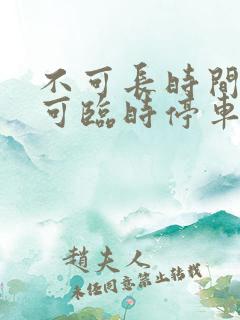 不可長時間
可臨時停車
趙夫人
未經同意禁止轉載